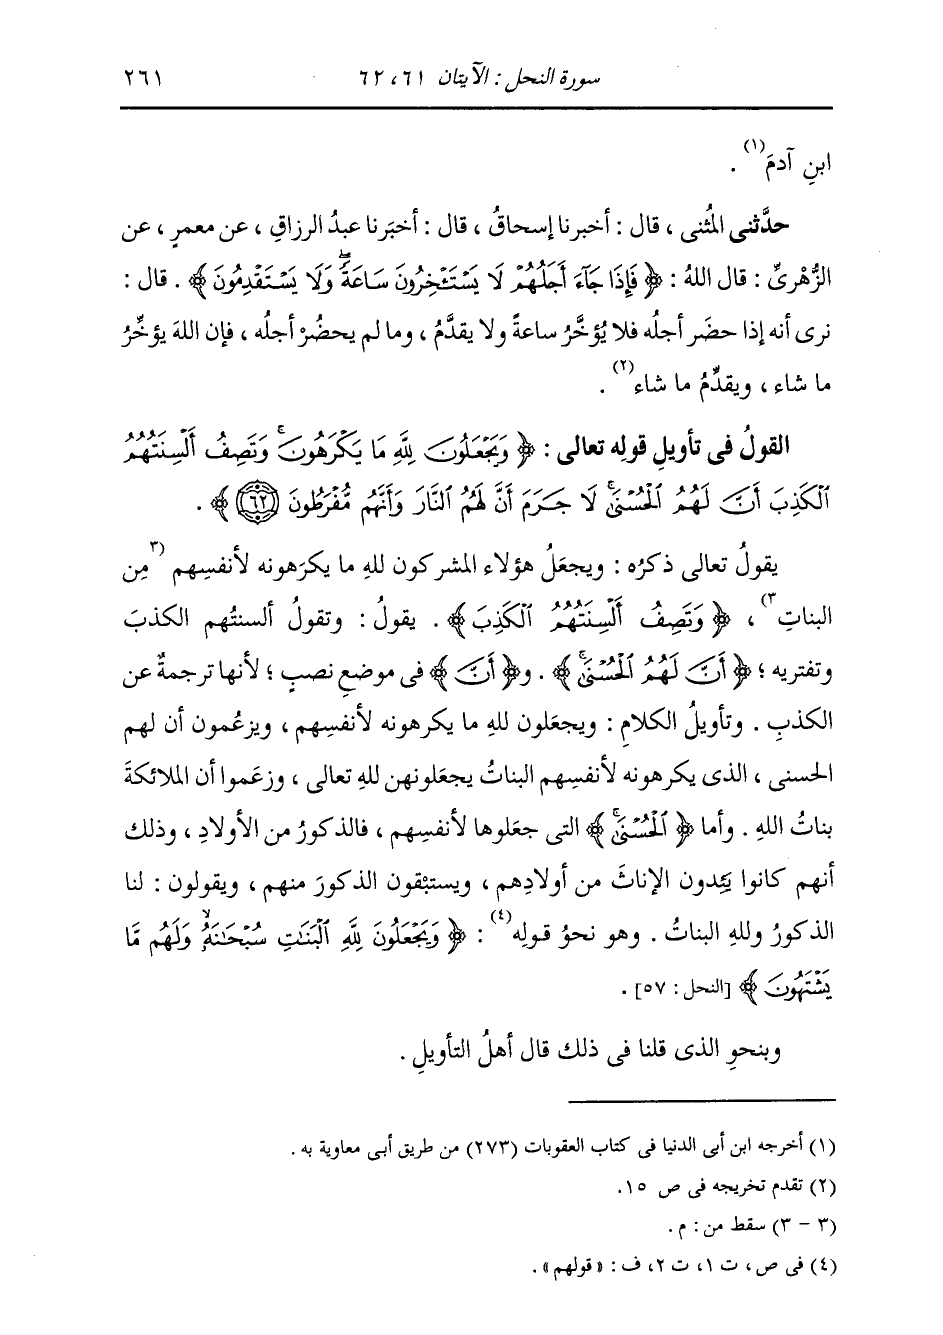 سورة النحل : الآيتان ٦١ ، ٦٢ ٢٦١
ابنِ آدمَ(١) .
حدَّثنى المُثنى ، قال : أخبرنا إسحاقُ ، قال : أخبَرنا عبدُ الرزاقِ ، عن معمرٍ ، عن
الزُّهرىِّ : قال اللهُ : ﴿ فَإِذَا جَآءَ أَجَلُهُمْ لَا يَسْتَـْٔخِرُونَ سَاعَةً ۖ وَلَا يَسْتَقْدِمُونَ ﴾ . قال :
نرى أنه إذا حضَر أجلُه فلا يُؤخَّرُ ساعةً ولا يقدَّمُ ، وما لم يحضُرْ أجلُه ، فإن اللهَ يؤخِّرُ
ما شاء ، ويقدِّمُ ما شاء(٢) .
القولُ فى تأويلِ قولِه تعالى : ﴿ وَيَجْعَلُونَ لِلَّهِ مَا يَكْرَهُونَ ۚ وَتَصِفُ أَلْسِنَتُهُمُ
ٱلْكَذِبَ أَنَّ لَهُمُ ٱلْحُسْنَىٰ ۚ لَا جَرَمَ أَنَّ لَهُمُ ٱلنَّارَ وَأَنَّهُم مُّفْرَطُونَ ٦٢ ﴾ .
يقولُ تعالى ذكرُه : ويجعَلُ هؤلاء المشركون للهِ ما يكرَهونه لأنفسِهم ٣) مِن
البناتِ ٣) ، ﴿ وَتَصِفُ أَلْسِنَتُهُمُ ٱلْكَذِبَ ﴾ . يقولُ : وتقولُ ألسنتُهم الكذبَ
وتفتريه ؛ ﴿ أَنَّ لَهُمُ ٱلْحُسْنَىٰ ۚ ﴾ . و﴿ أَنَّ ﴾ فى موضعِ نصبٍ ؛ لأنها ترجمةٌ عن
الكذبِ . وتأويلُ الكلامِ : ويجعَلون للهِ ما يكرهونه لأنفسِهم ، ويزعُمون أن لهم
الحسنى ، الذى يكرهونه لأنفسِهم البناتُ يجعَلونهن للهِ تعالى ، وزعَموا أن الملائكةَ
بناتُ اللهِ . وأما ﴿ ٱلْحُسْنَىٰ ۚ ﴾ التى جعَلوها لأنفسِهم ، فالذكورُ من الأولادِ ، وذلك
أنهم كانوا يَئِدون الإناثَ من أولادِهم ، ويستبْقون الذكورَ منهم ، ويقولون : لنا
الذكورُ وللهِ البناتُ . وهو نحوُ قولِه(٤) : ﴿ وَيَجْعَلُونَ لِلَّهِ ٱلْبَنَٰتِ سُبْحَٰنَهُۥ ۙ وَلَهُم مَّا
يَشْتَهُونَ ﴾ [النحل : ٥٧] .
وبنحوِ الذى قلنا فى ذلك قال أهلُ التأويلِ .
(١) أخرجه ابن أبى الدنيا فى كتاب العقوبات (٢٧٣) من طريق أبى معاوية به .
(٢) تقدم تخريجه فى ص ١٥.
(٣ - ٣) سقط من : م .
(٤) فى ص ، ت ١، ت ٢، ف : « قولهم » .